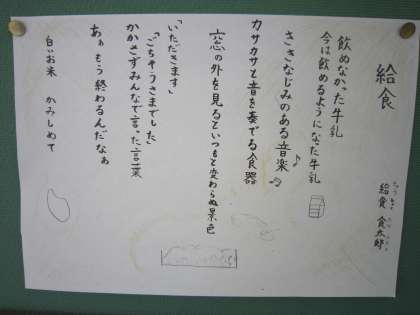 給食
給食 食太郎
飲めなかった牛乳
今は飲めるようになった牛乳
ききなじみのある音楽♪
カサカサと音を奏でる食器
窓の外を見るといつもと変わらぬ景色
「いただきます」
「ごちそうさまでした」
かかさずみんなで言った言葉
あぁもう終わるんだなぁ
白いお米 かみしめて